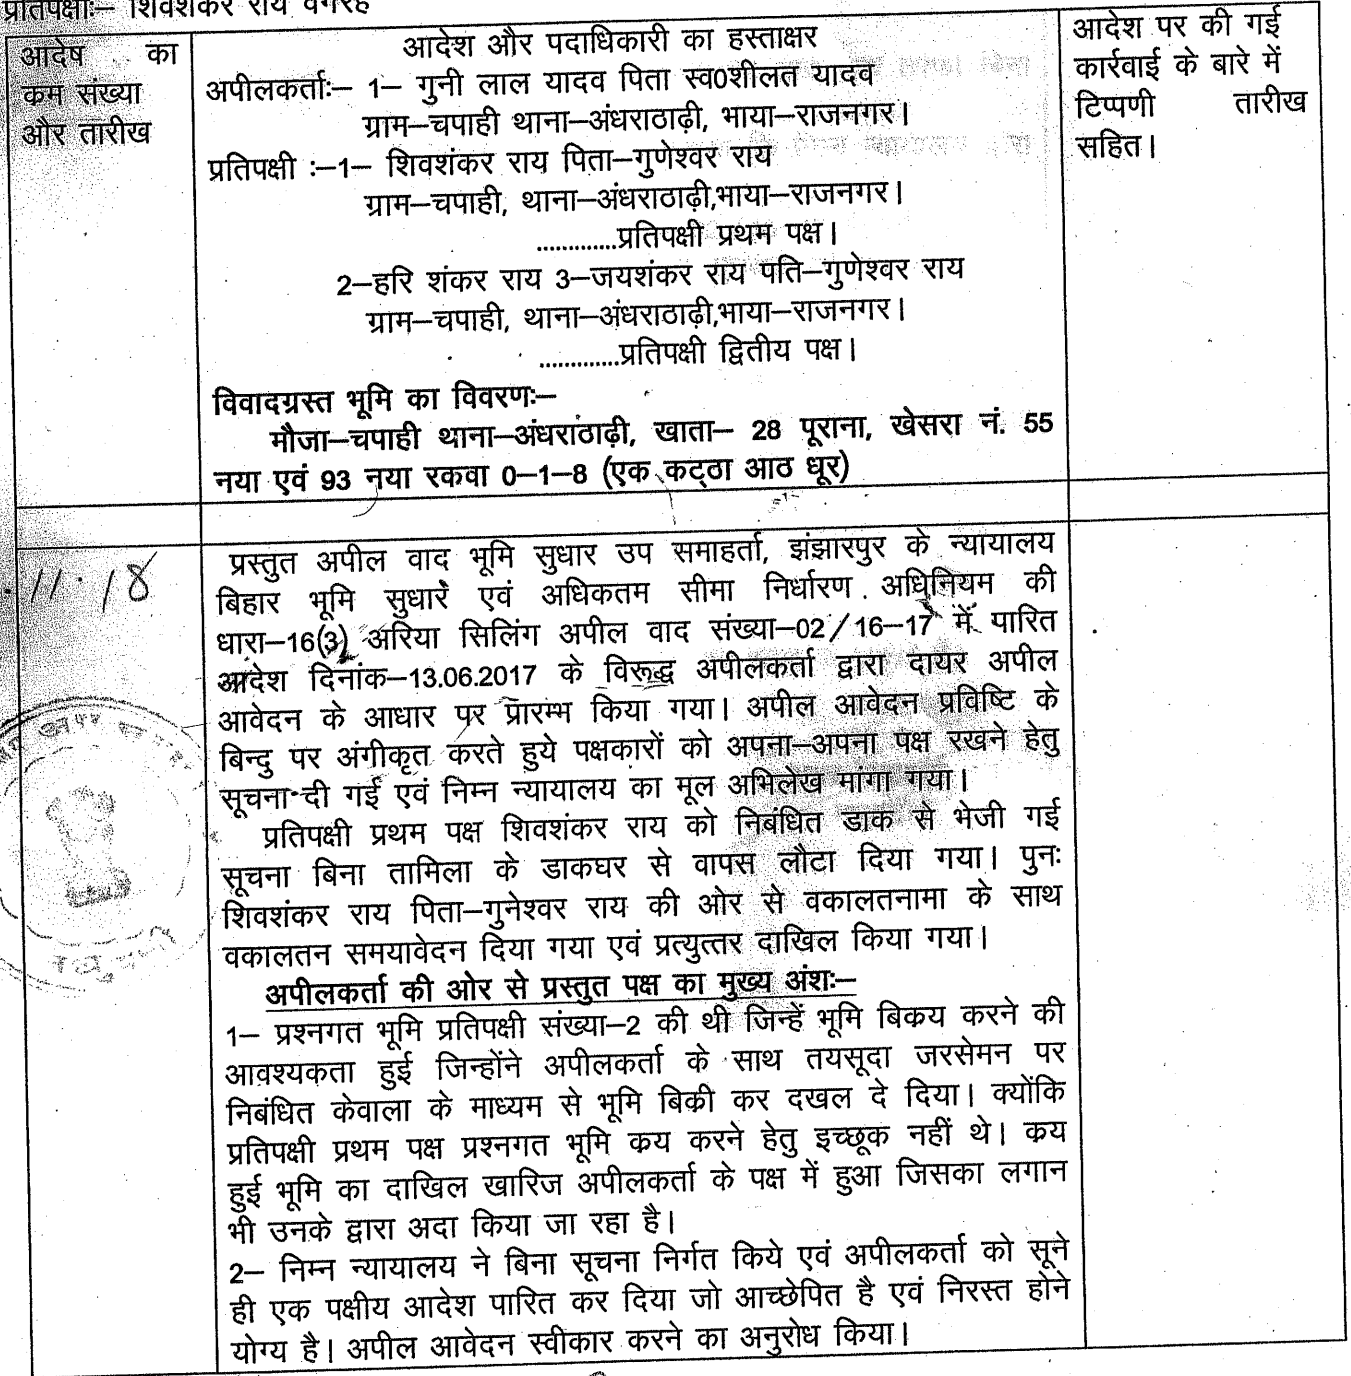 प्रतिपक्षीः– शिवशंकर राय वगैरह
आदेष का
कम संख्या
और तारीख
आदेश और पदाधिकारी का हस्ताक्षर
अपीलकर्ताः– 1– गुनी लाल यादव पिता स्व0शीलत यादव
ग्राम–चपाही थाना–अंधराठाढ़ी, भाया–राजनगर।
प्रतिपक्षी :–1– शिवशंकर राय पिता–गुणेश्वर राय
ग्राम–चपाही, थाना–अंधराठाढ़ी,भाया–राजनगर।
.............प्रतिपक्षी प्रथम पक्ष।
2–हरि शंकर राय 3–जयशंकर राय पति–गुणेश्वर राय
ग्राम–चपाही, थाना–अंधराठाढ़ी,भाया–राजनगर।
.............प्रतिपक्षी द्वितीय पक्ष।
विवादग्रस्त भूमि का विवरणः–
मौजा–चपाही थाना–अंधराठाढ़ी, खाता– 28 पूराना, खेसरा नं. 55
नया एवं 93 नया रकवा 0–1–8 (एक कट्ठा आठ धूर)
आदेश पर की गई
कार्रवाई के बारे में
टिप्पणी तारीख
सहित।
11.18
प्रस्तुत अपील वाद भूमि सुधार उप समाहर्ता, झंझारपुर के न्यायालय
बिहार भूमि सुधारें एवं अधिकतम सीमा निर्धारण अधिनियम की
धारा–16(3) अरिया सिलिंग अपील वाद संख्या–02/16–17 में पारित
आदेश दिनांक–13.06.2017 के विरूद्ध अपीलकर्ता द्वारा दायर अपील
आवेदन के आधार पर प्रारम्भ किया गया। अपील आवेदन प्रविष्टि के
बिन्दु पर अंगीकृत करते हुये पक्षकारों को अपना–अपना पक्ष रखने हेतु
सूचना दी गई एवं निम्न न्यायालय का मूल अभिलेख मांगा गया।
प्रतिपक्षी प्रथम पक्ष शिवशंकर राय को निबंधित डाक से भेजी गई
सूचना बिना तामिला के डाकघर से वापस लौटा दिया गया। पुनः
शिवशंकर राय पिता–गुनेश्वर राय की ओर से वकालतनामा के साथ
वकालतन समयावेदन दिया गया एवं प्रत्युत्तर दाखिल किया गया।
अपीलकर्ता की ओर से प्रस्तुत पक्ष का मुख्य अंशः–
1– प्रश्नगत भूमि प्रतिपक्षी संख्या–2 की थी जिन्हें भूमि बिकय करने की
आवश्यकता हुई जिन्होंने अपीलकर्ता के साथ तयसूदा जरसेमन पर
निबंधित केवाला के माध्यम से भूमि बिकी कर दखल दे दिया। क्योंकि
प्रतिपक्षी प्रथम पक्ष प्रश्नगत भूमि कय करने हेतु इच्छूक नहीं थे। कय
हुई भूमि का दाखिल खारिज अपीलकर्ता के पक्ष में हुआ जिसका लगान
भी उनके द्वारा अदा किया जा रहा है।
2– निम्न न्यायालय ने बिना सूचना निर्गत किये एवं अपीलकर्ता को सूने
ही एक पक्षीय आदेश पारित कर दिया जो आच्छेपित है एवं निरस्त होने
योग्य है। अपील आवेदन स्वीकार करने का अनुरोध किया।